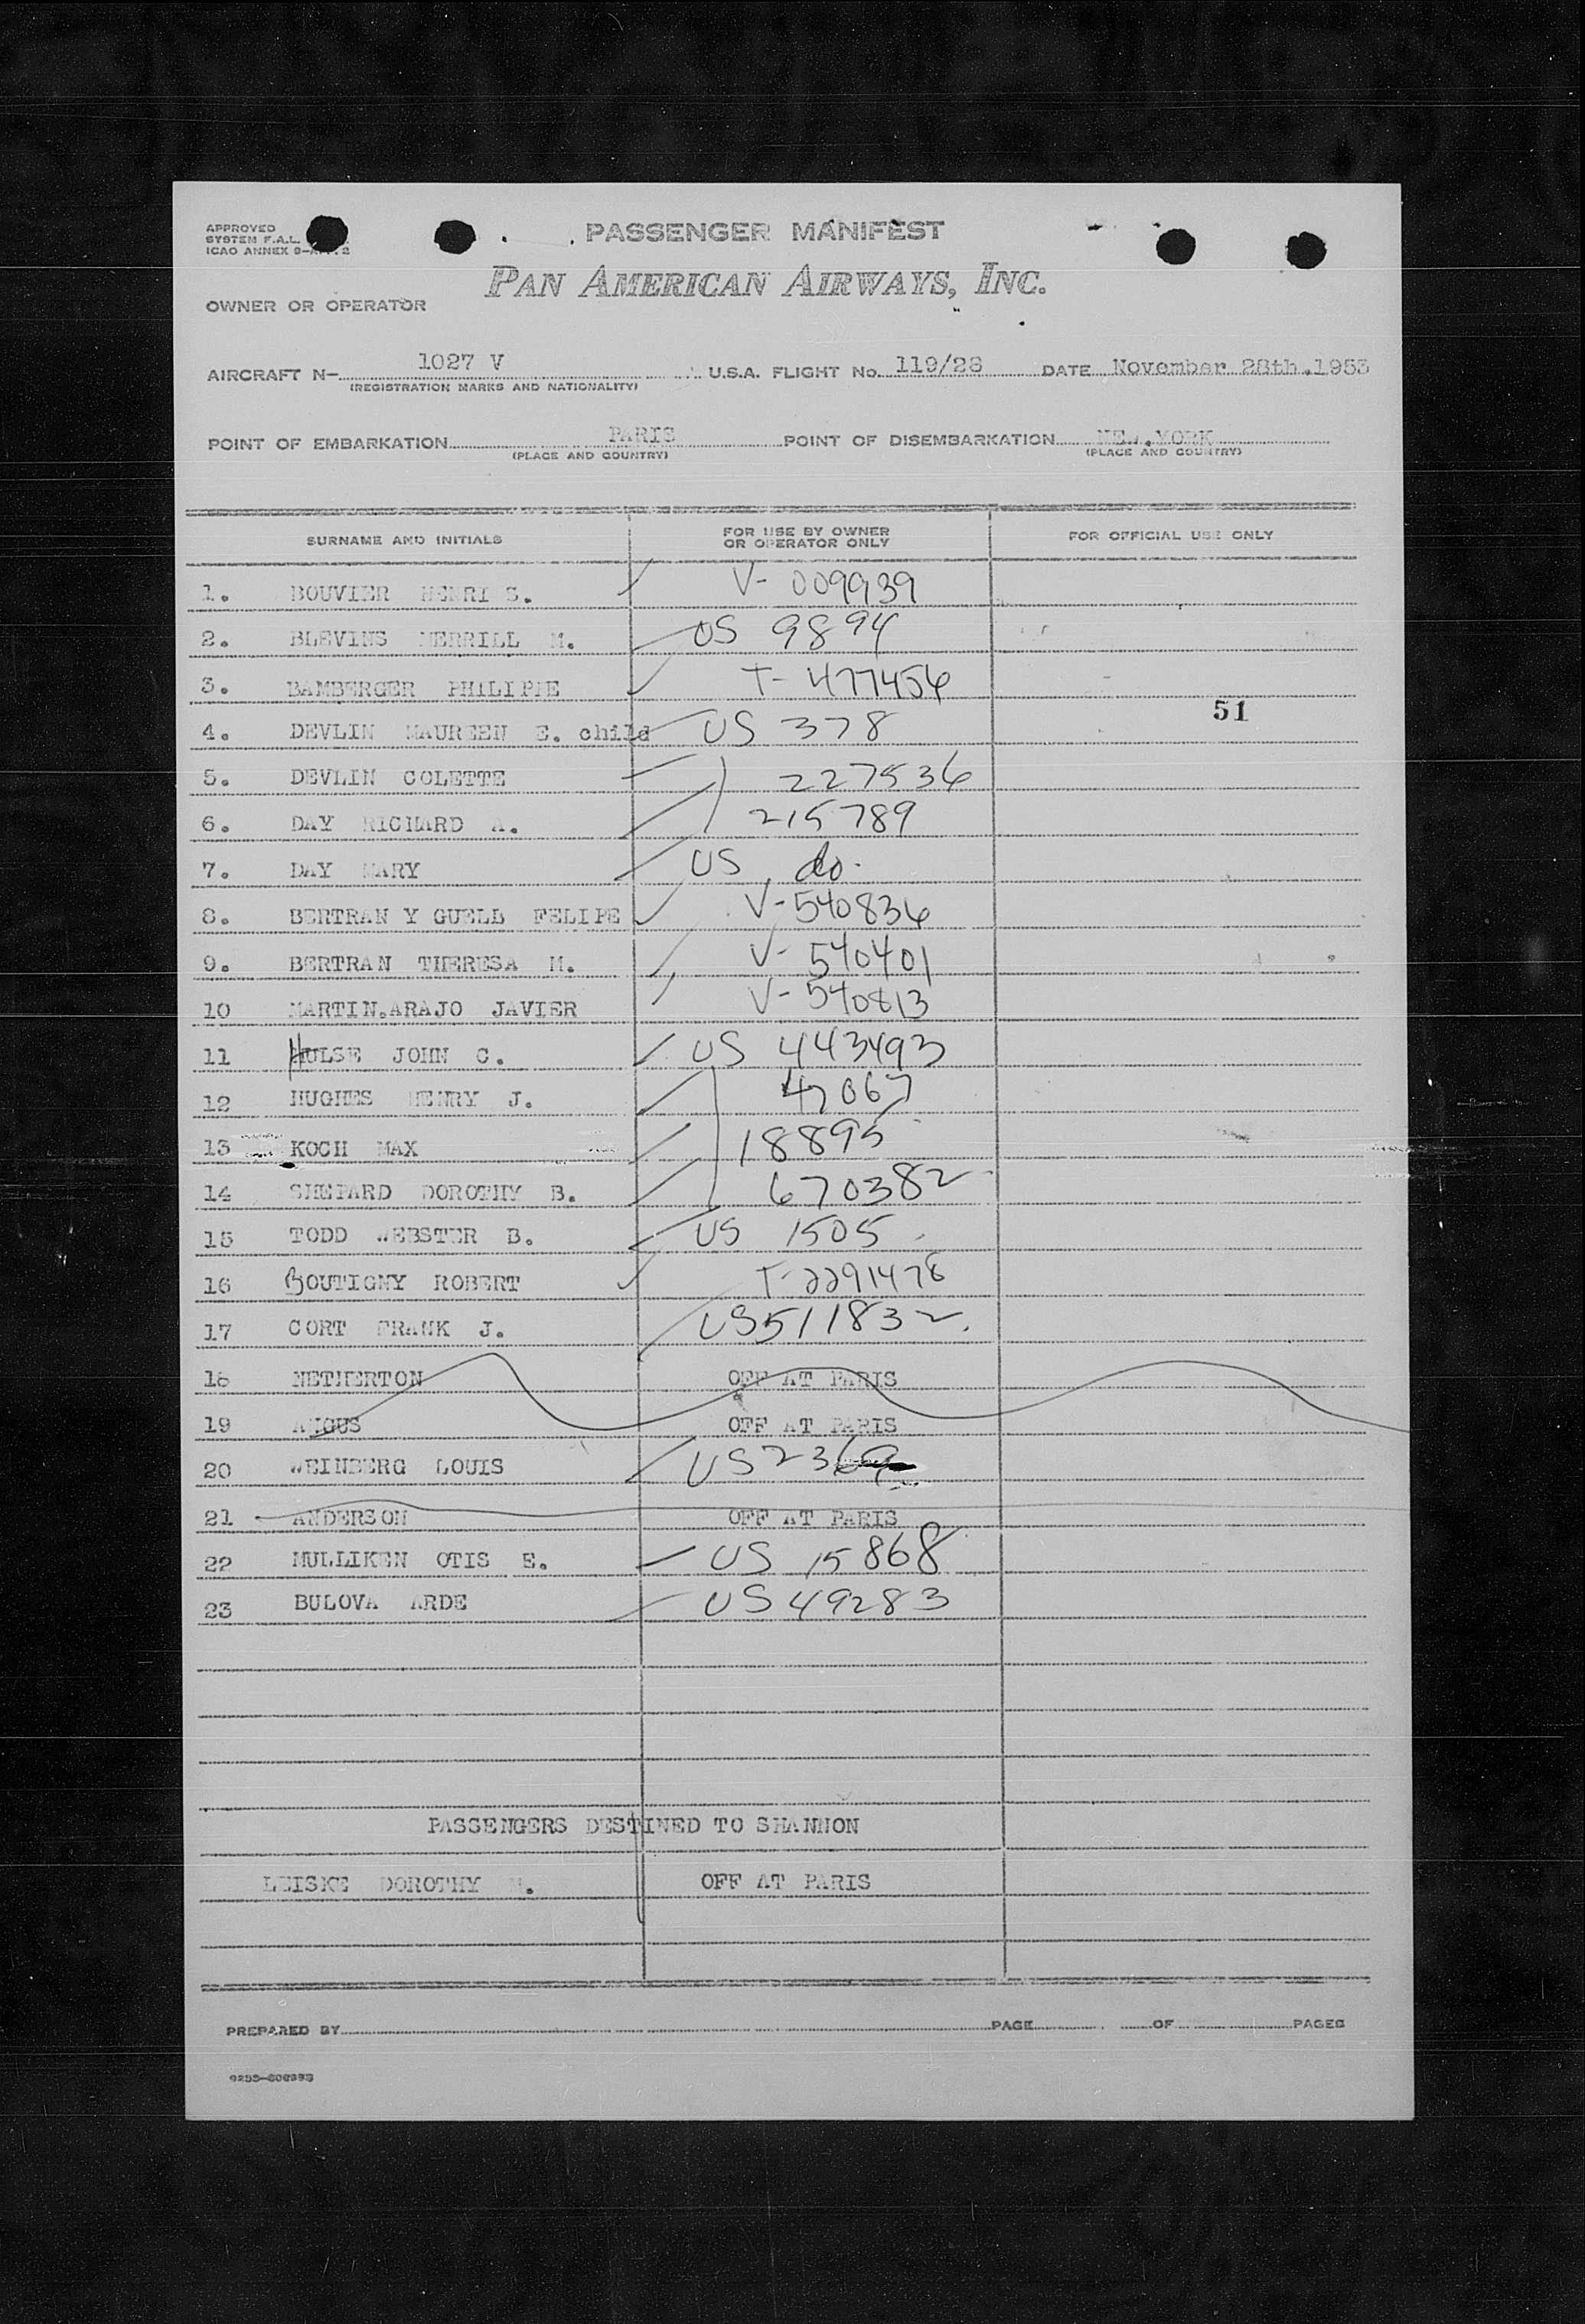 APPROVED
SYSTEM F.A.L.
ICAO ANNEX 9-APP. 2
PASSENGER MANIFEST
PAN AMERICAN AIRWAYS, INC.
OWNER OR OPERATOR
AIRCRAFT N- 1027 V U.S.A. FLIGHT No. 119/28 DATE November 28th.1953
(REGISTRATION MARKS AND NATIONALITY)
POINT OF EMBARKATION PARIS POINT OF DISEMBARKATION NEW YORK
(PLACE AND COUNTRY) (PLACE AND COUNTRY)
SURNAME AND INITIALS FOR USE BY OWNER OR OPERATOR ONLY FOR OFFICIAL USE ONLY
1. BOUVIER HENRI S. V- 009939
2. BLEVINS MERRILL M. US 9894
3. BAMBERGER PHILIPPE T- 477456
51
4. DEVLIN MAUREEN E. child US 378
5. DEVLIN COLETTE 227536
6. DAY RICHARD A. 215789
7. DAY MARY US do.
8. BERTRAN Y GUELL FELIPE V-540836
9. BERTRAN THERESA M. V- 540401
10 MARTIN.ARAJO JAVIER V-540813
11 HULSE JOHN C. US 443493
12 HUGHES HENRY J. 47067
13 KOCH MAX 18895
14 SHEPARD DOROTHY B. 670382
15 TODD WEBSTER B. US 1505
16 BOUTIGNY ROBERT T-2291478
17 CORT FRANK J. US511832
18 NETHERTON OFF AT PARIS
19 ANGUS OFF AT PARIS
20 WEINBERG LOUIS US2369
21 ANDERSON OFF AT PARIS
22 MULLIKEN OTIS E. US 15868
23 BULOVA ARDE US49283
PASSENGERS DESTINED TO SHANNON
LEISKE DOROTHY OFF AT PARIS
PREPARED BY PAGE OF PAGES